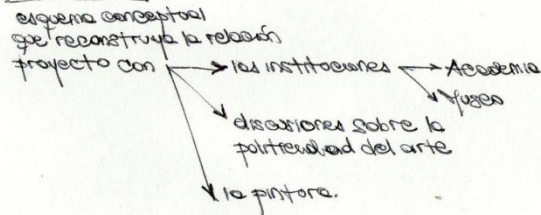 esquema conceptual
que reconstruya la relación
proyecto con → las instituciones → Academia
Museo
discusiones sobre la
politicidad del arte
la pintora.